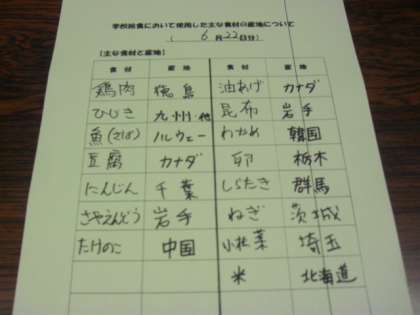 学校給食において使用した主な食材の産地について
( 6月22日分)
[主な食材と産地]
食材 産地 食材 産地
鶏肉 徳島 油あげ カナダ
ひじき 九州・他 昆布 岩手
魚(さば) ノルウェー わかめ 韓国
豆腐 カナダ 卵 栃木
にんじん 千葉 しらたき 群馬
さやえんどう 岩手 ねぎ 茨城
たけのこ 中国 小松菜 埼玉
米 北海道